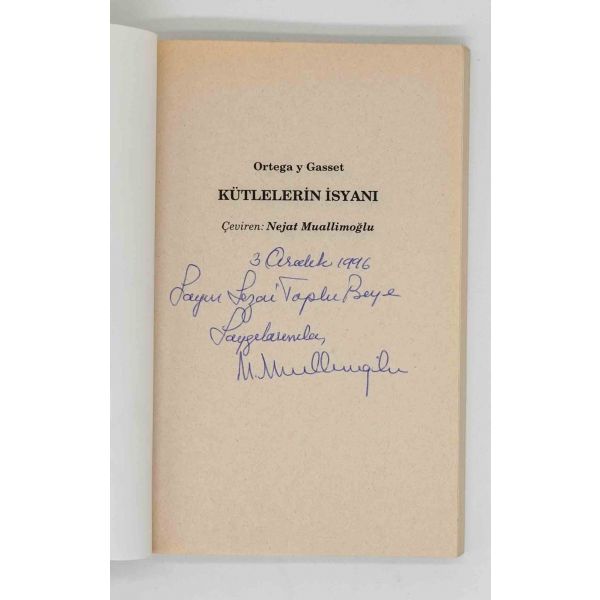 Ortega y Gasset
KÜTLELERİN İSYANI
Çeviren: Nejat Muallimoğlu
3 Aralık 1996
Sayın Sezai Toplu Beye
Saygılarımla,
N. Muallimoğlu